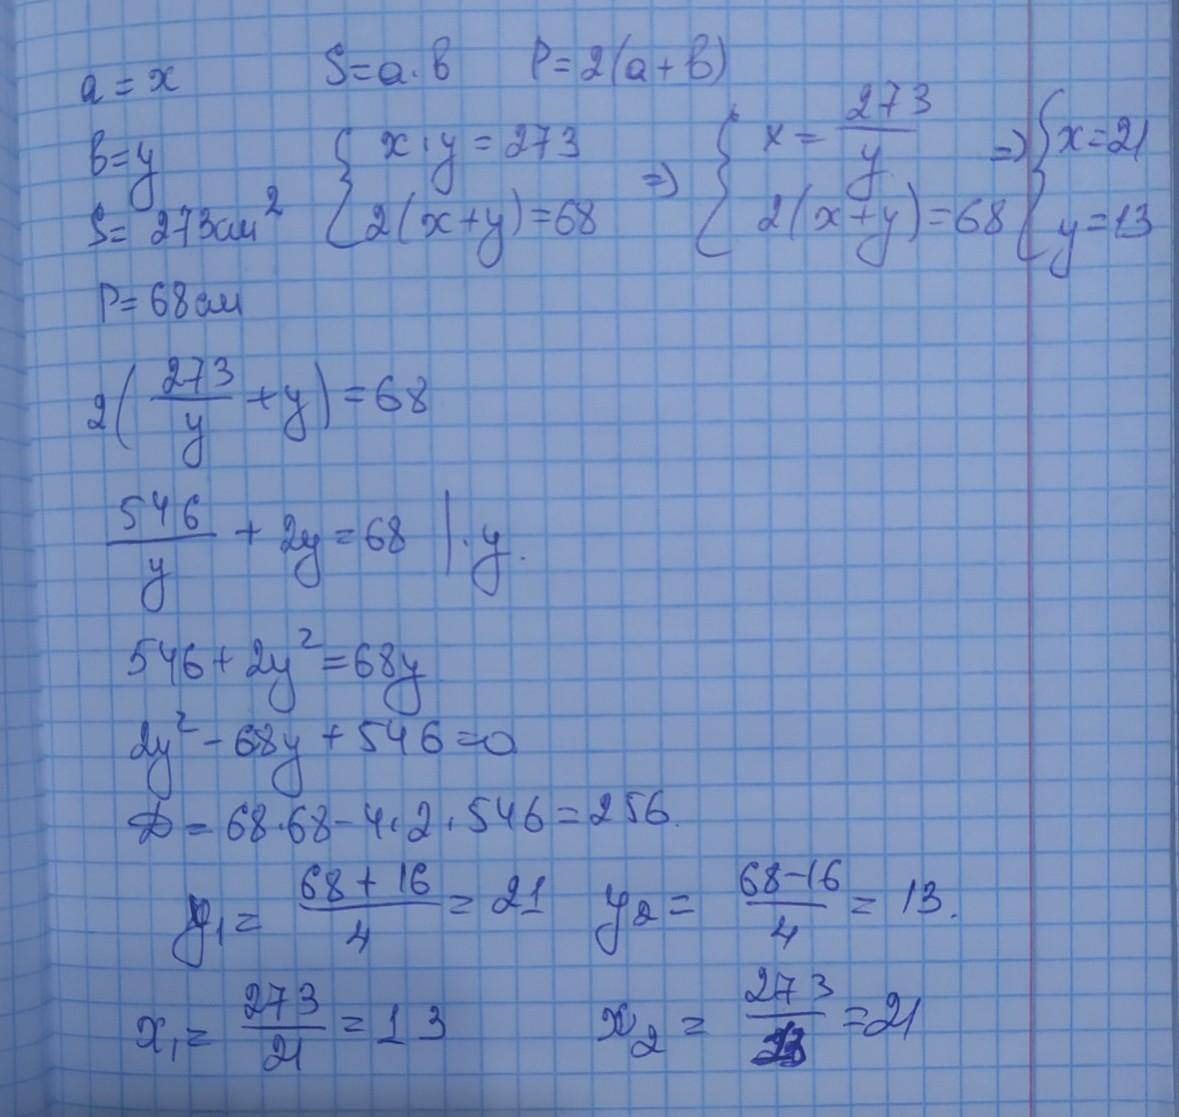 a = x   S = a · b   P = 2(a + b)
b = y   { x · y = 273   =>   { x = 273/y   =>   { x = 21
S = 273 см²   { 2(x + y) = 68   { 2(x + y) = 68   { y = 13
P = 68 см
2(273/y + y) = 68
546/y + 2y = 68 | · y.
546 + 2y² = 68y
2y² - 68y + 546 = 0
D = 68 · 68 - 4 · 2 · 546 = 256.
y₁ = (68 + 16)/4 = 21   y₂ = (68 - 16)/4 = 13.
x₁ = 273/21 = 13   x₂ = 273/13 = 21